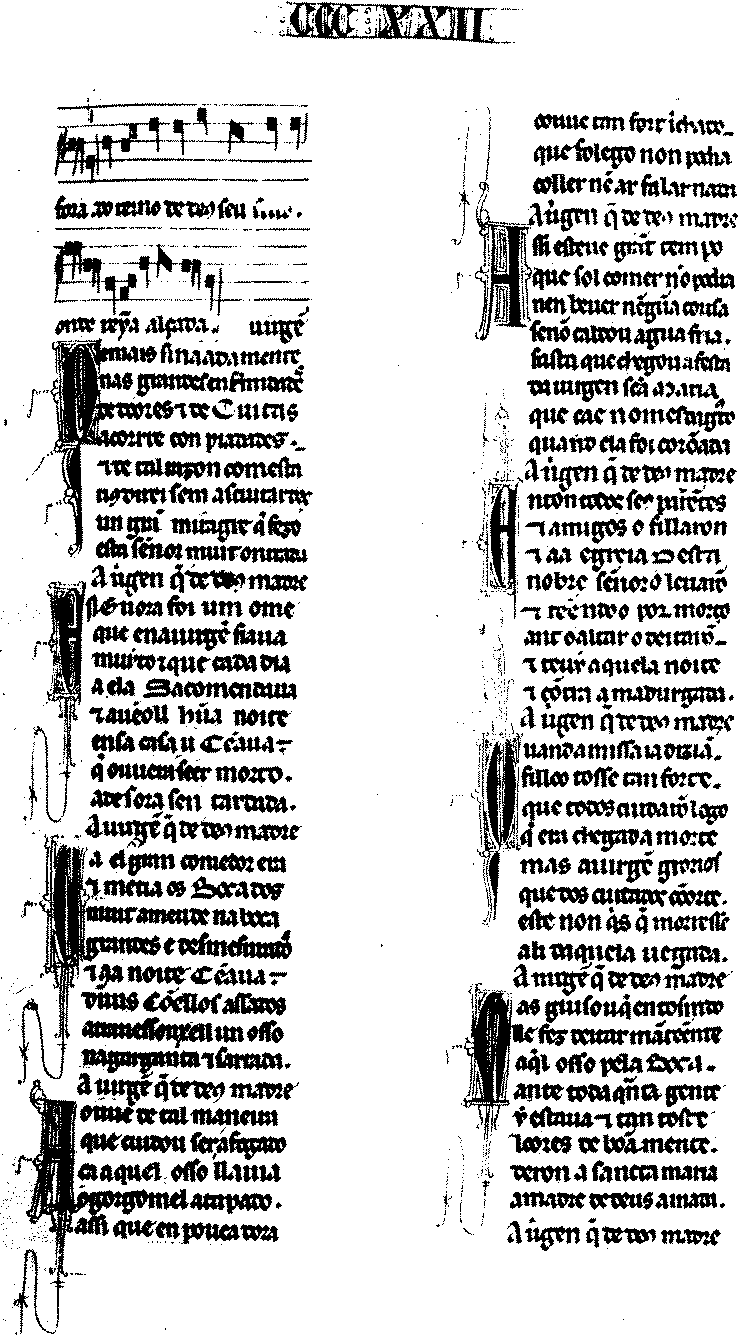 CCC XXII.
fora do reino de deus seu
onde reỹa alçada. uirgẽ
Demais sinaadamente
nas grandes enfermidadẽ
de doores ⁊ de Cuitas
acorre con piadades.
⁊ de tal razon com esta
uos direi sem ascuitardes
un gran miragre q̃ fezo
esta sẽnor muit onrrada
A uirgen q̃ de deus madre
En Euora foi um ome
que ena uirgẽ fiaua
muito ⁊ que cada dia
a ela Sacomendaua
⁊ auẽoll hũa noite
en sa casa u Cẽaua
q̃ ouuera seer morto.
adesora sen tardada.
A uirgẽ q̃ de deus madre
Ca el gran comedor era
⁊ metia os Bocados
muit ameude na boca
grandes e desmesurados
⁊ aa noite Cẽaua
dũus Cõellos assados
atrauessouxell un osso
na garganta ⁊ sarrada.
A uirgẽ q̃ de deus madre
Houue de tal maneira
que cuidou ser afogado
ca aquel osso llauia
o gorgomel atapado.
assi que en pouca dora
ouue tan fort ichado
que folego non podia
coller nẽ ar falar nada
A uirgen q̃ de deus madre
Assi esteue grãt tempo
que sol comer nõ podia
nen beuer nẽgũa cousa
senõ caldo ou agua fria.
fasta que chegou a festa
da uirgen sc̃a Maria
que cae no mes dagosto
quando ela foi corõada
A uirgen q̃ de deus madre
Enton todos seus parẽtes
⁊ amigos o fillaron
⁊ aa egreia desta
nobre sẽnor o leuarõ
⁊ teẽndoo por morto
ant o altar o deitarõ
⁊ teuer aquela noite
⁊ cõtra a madurgada.
A uirgen q̃ de deus madre
Quand a missa ia dizian.
fillou tosse tan forte.
que todos cuidarõ logo
q̃ era chegada morte
mas a uirgẽ groriosa
que dos cuitados cõorte.
este non q̃s q̃ morresse
ali daquela uegada.
A uirgẽ q̃ de deus madre
Mas guisou q̃ en tossindo
lle fez deitar mãtẽente
aq̃l osso pela Boca.
ante toda q̃nta gente
ỹ estaua ⁊ tan toste
loores de boa mente.
deron a sancta maria
a madre de deus amada.
A uirgen q̃ de deus madre